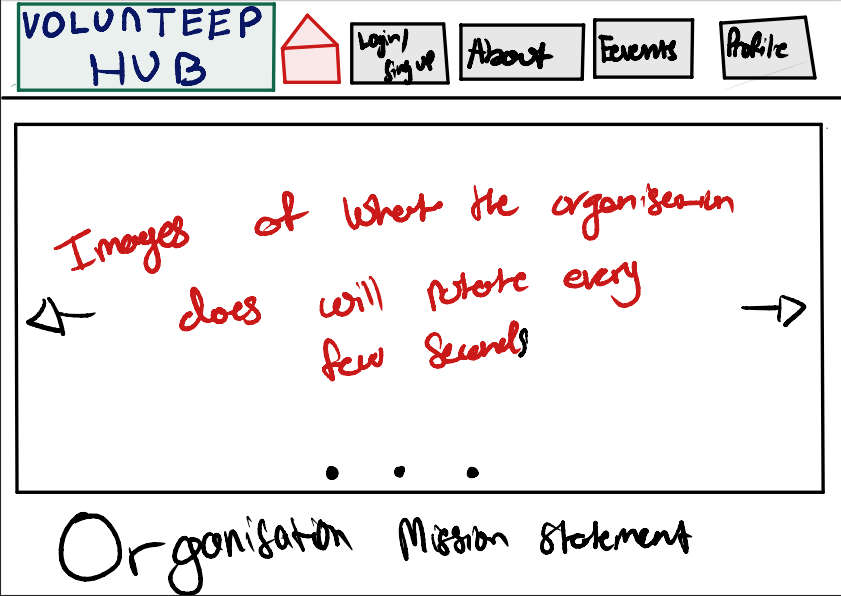 VOLUNTEEP
HUB
Login/
Sing up
About
Eevents
Profile
Images of what the organisation
does will rotate every
few seconds
Organisation Mission Statement